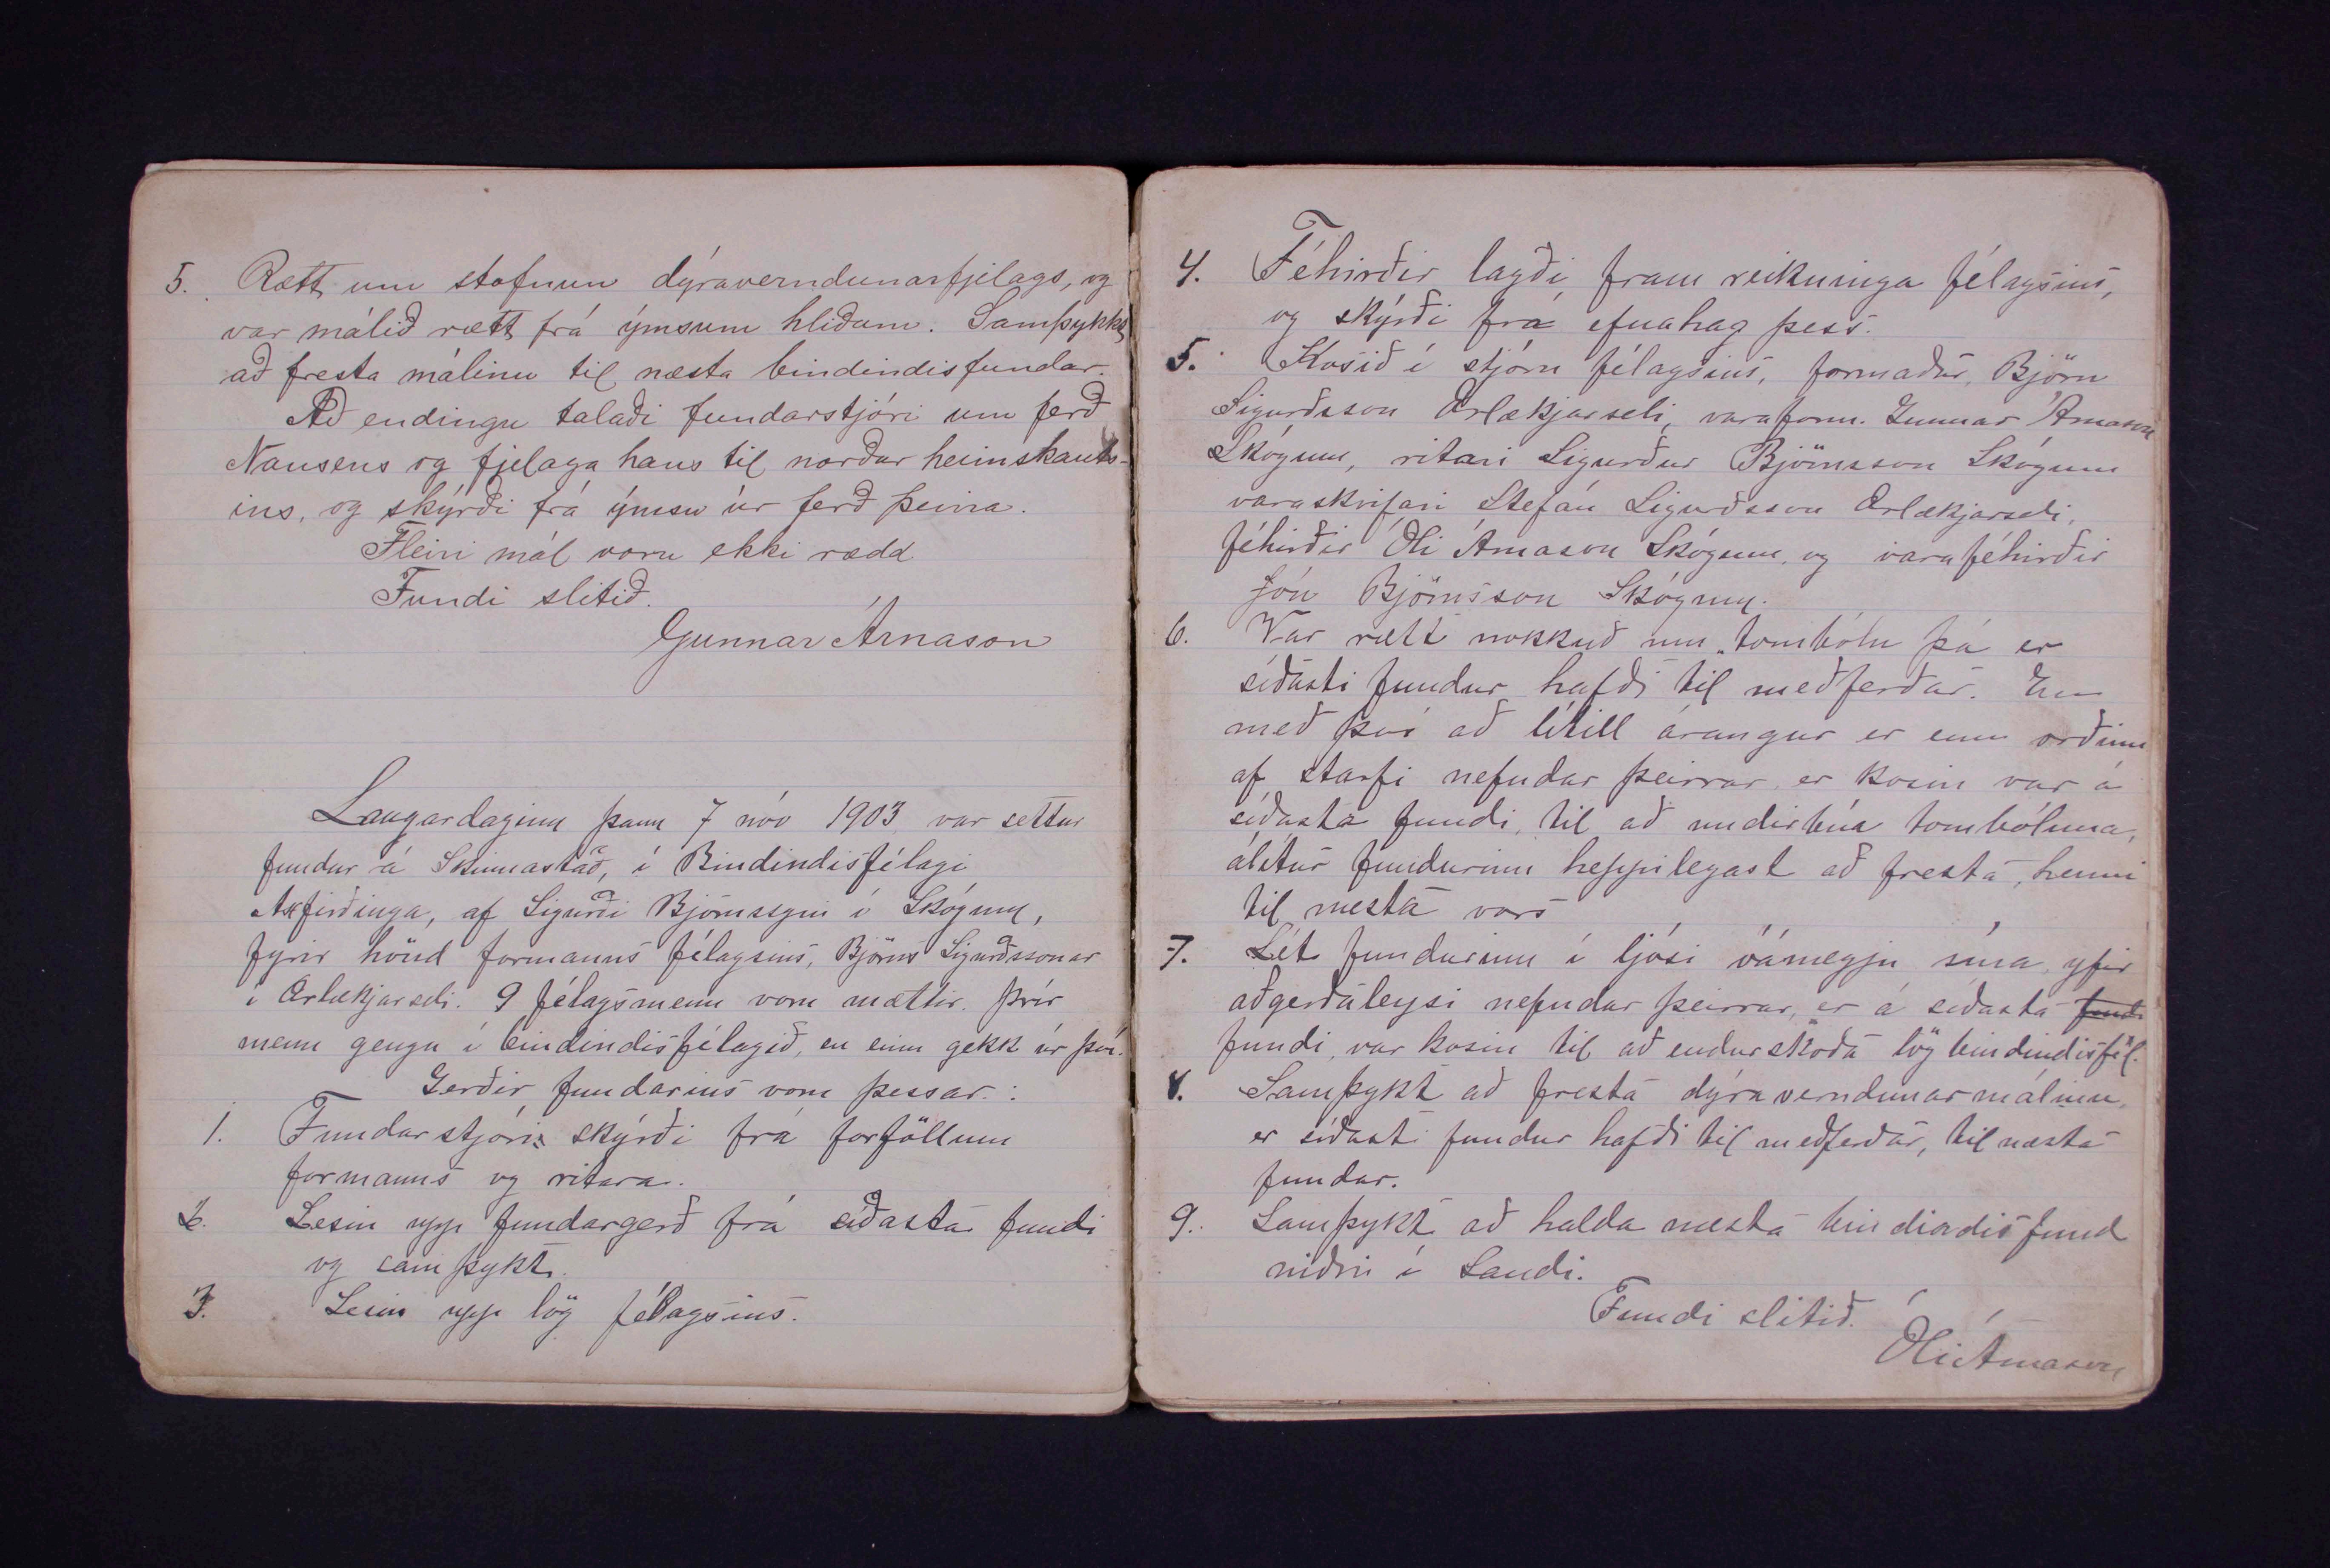 5. Rætt um stofnun dýraverndunarfjelags, og
var málið rætt frá ýmsum hliðum. Samþykkt
að fresta málinu til næsta bindindisfundar.
Að endingu talaði fundarstjóri um ferð
Nansens og fjelaga hans til norður heimskauts-
ins, og skýrði frá ýmsu úr ferð þeirra.
Fleiri mál voru ekki rædd
Fundi slitið.
Gunnar Árnason
Laugardaginn þann 7 nóv 1903 var settur
fundur á Skinnastað, í Bindindisfélagi
Axfirðinga, af Sigurði Björnssyni í Skógum,
fyrir hönd formanns félagsins, Björns Sigurðssonar
í Ærlækjarseli. 9 félagsmenn voru mættir. Þrír
menn gengu í bindindisfélagið, en einn gekk úr því.
Gerðir fundarins voru þessar:
1. Fundarstjóri skýrði frá forföllum
formanns og ritara.
2. Lesin upp fundargerð frá síðasta fundi
og samþykt.
3. Lesin upp lög félagsins.
4. Féhirðir lagði fram reikninga félagsins,
og skýrði frá efnahag þess.
5. Kosið í stjórn félagsins, formaður, Björn
Sigurðsson Ærlækjarseli, varaform. Gunnar Árnason
Skógum, ritari Sigurður Björnsson Skógum
varaskrifari Stefán Sigurðsson Ærlækjarseli,
féhirðir Óli Árnason Skógum, og varaféhirðir
Jón Björnsson Skógum.
6. Var rætt nokkuð um tombólu þá er
síðasti fundur hafði til meðferðar. En
með því að lítill árangur er enn orðinn
af starfi nefndar þeirrar er kosin var á
síðasta fundi, til að undirbúa tombóluna,
álítur fundurinn heppilegast að fresta henni
til næsta vors
7. Lét fundurinn í ljósi óánægju sína yfir
aðgerðaleysi nefndar þeirrar, er á síðasta fundi
fundi, var kosin til að endurskoða lög bindindisfél.
8. Samþykt að fresta dýraverndunarmálinu,
er síðasti fundur hafði til meðferðar, til næsta
fundar.
9. Samþykt að halda næsta bindindisfund
niðri í Sandi.
Fundi slitið.
Óli Árnason